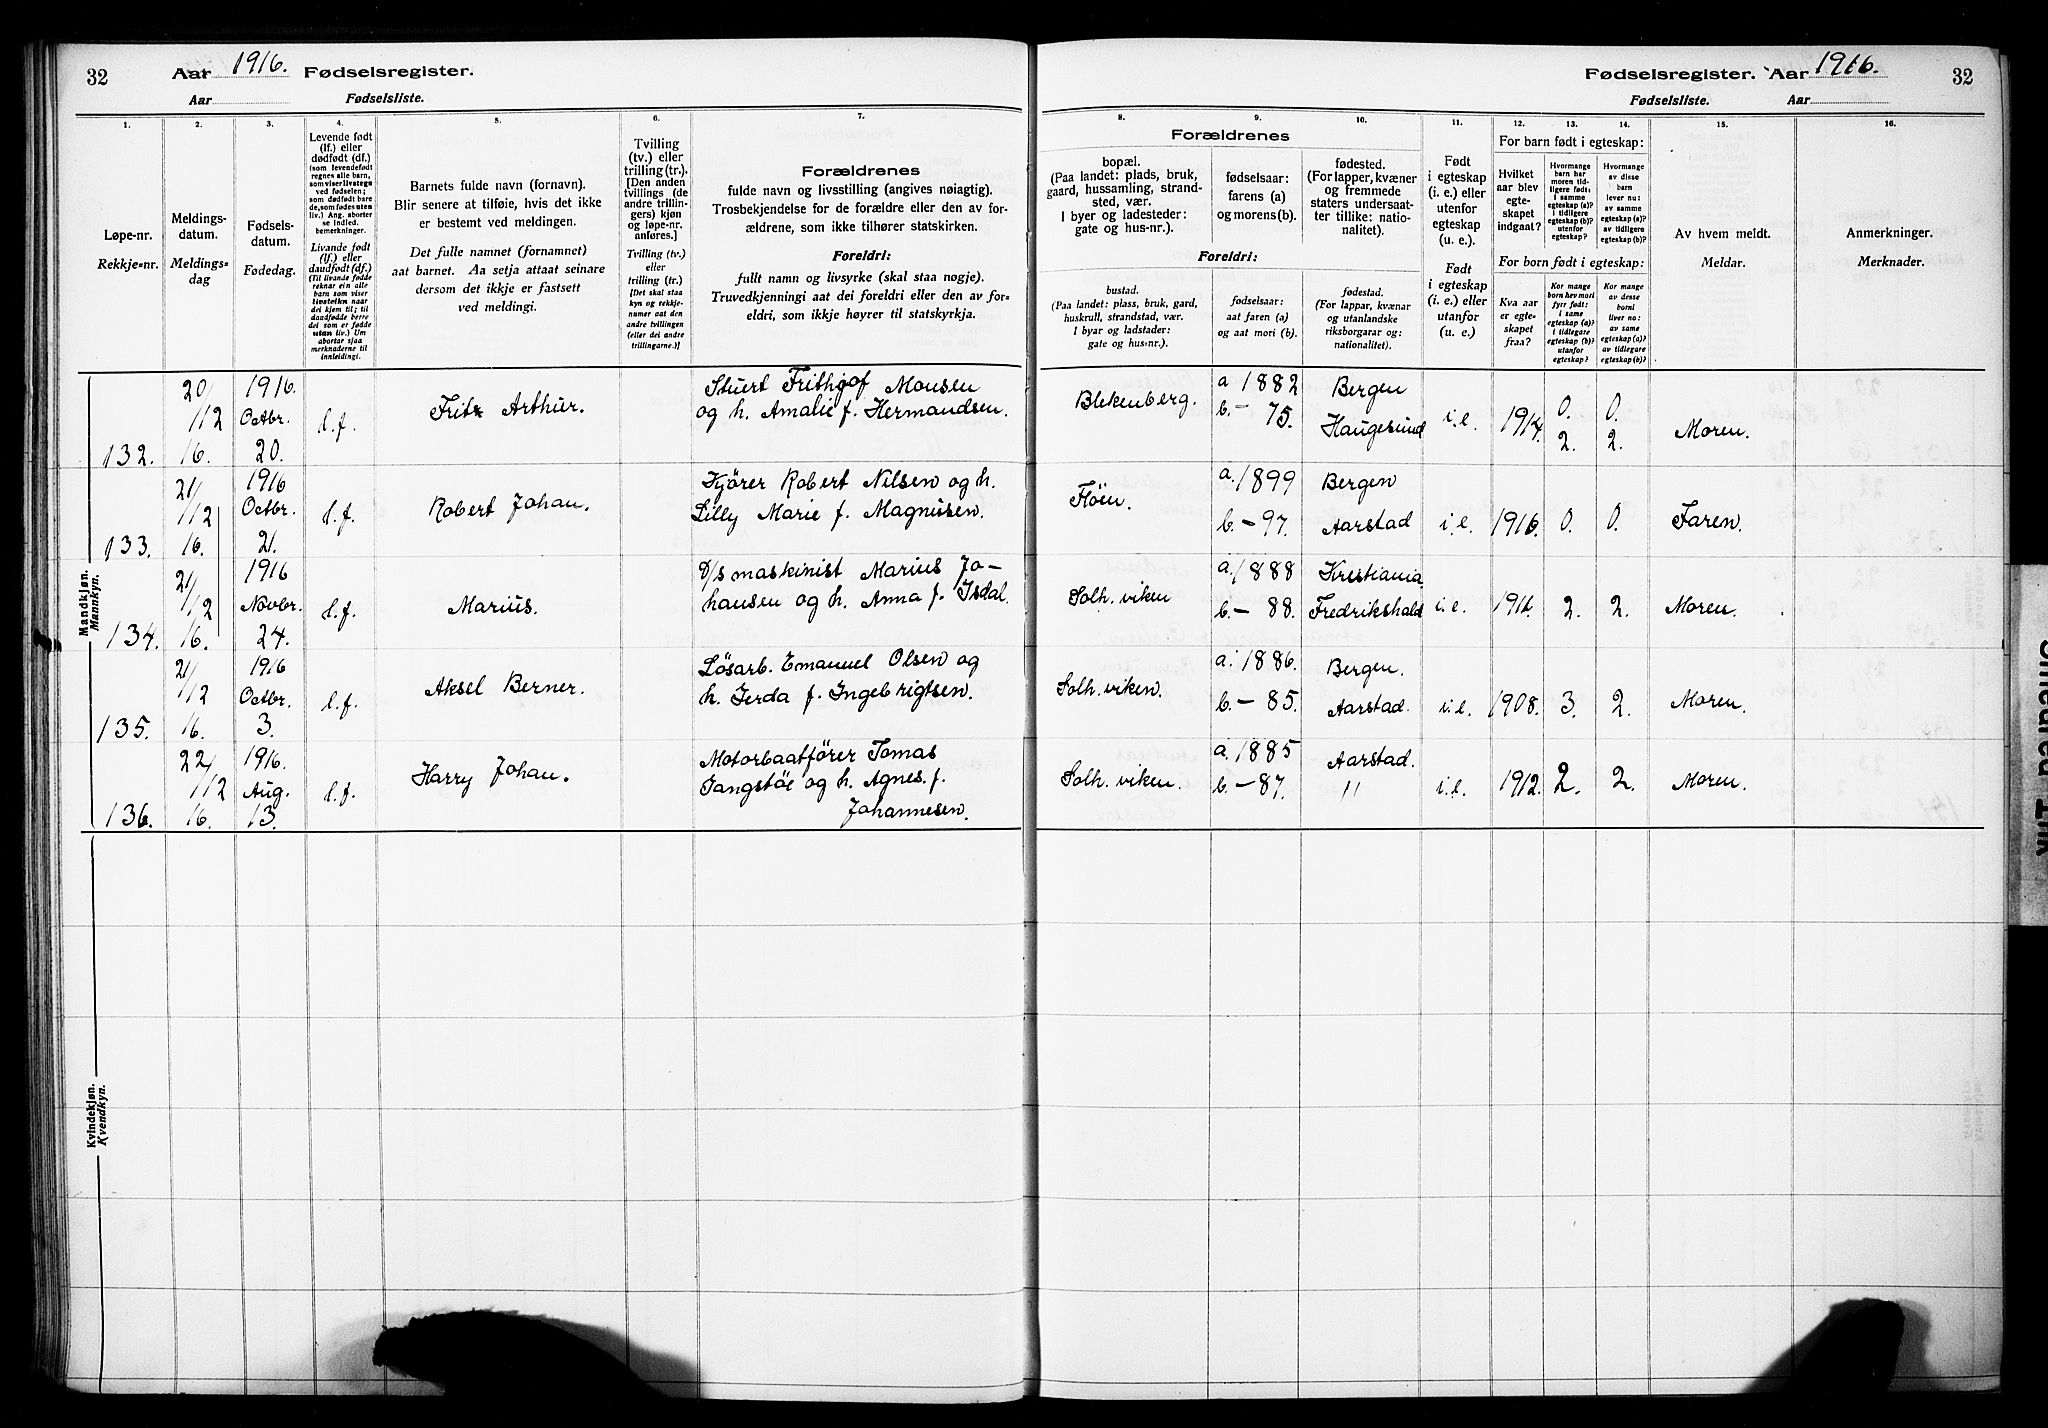 32
Aar 1916. Fødselsregister.
Aar Fødselsliste.
Fødselsregister. Aar 1916.
32
Fødselsliste. Aar
1.
Løpe-nr.
Rekkje-nr.
2.
Meldings-
datum.
Meldings-
dag
3.
Fødsels-
datum.
Fødedag.
4.
Levende født
(lf.) eller
dødfødt (df.)
(som levendefødt
regnes alle barn,
som viser livstegn
ved fødselen;
som dødfødt bare
de, som fødes uten
liv.) Ang. aborter
se indled.
bemerkninger.
Livande født
(lf.) eller
daudfødt (df.)
(Til livande fødde
reknar ein alle
barn som viser
livsteikn naar
dei kjem til; til
daudfødde berre
dei som er fødde
utan liv.) Um
abortar sjaa
merknaderne til
innleidingi.
5.
Barnets fulde navn (fornavn).
Blir senere at tilføie, hvis det ikke
er bestemt ved meldingen.
Det fulle namnet (fornamnet)
aat barnet. Aa setja attaat seinare
dersom det ikkje er fastsett
ved meldingi.
6.
Tvilling
(tv.) eller
trilling (tr.).
[Den anden
tvillings (de
andre trillin-
gers) kjøn
og løpe-nr.
anføres.]
Tvilling (tv.)
eller
trilling (tr.)
[Det skal staa
kyn og rekkje-
numer aat den
andre tvillingen
(eller dei andre
trillingarne.)]
7.
Forældrenes
fulde navn og livsstilling (angives nøiagtig).
Trosbekjendelse for de forældre eller den av for-
ældrene, som ikke tilhører statskirken.
Foreldri:
fullt namn og livsyrke (skal staa nøgje).
Truvedkjenningi aat dei foreldri eller den av for-
eldri, som ikkje høyrer til statskyrkja.
8.
Forældrenes
bopæl.
(Paa landet: plads, bruk,
gaard, hussamling, strand-
sted, vær.
I byer og ladesteder:
gate og hus-nr.).
Foreldri:
bustad.
(Paa landet: plass, bruk, gard,
huskrull, strandstad, vær.
I byar og ladstader:
gate og hus-nr.).
9.
fødselsaar:
farens (a)
og morens (b).
fødselsaar:
aat faren (a)
og aat mori (b).
10.
fødested.
(For lapper, kvæner
og fremmede
staters undersaat-
ter tillike: natio-
nalitet).
fødestad.
(For lappar, kvænar
og utanlandske
riksborgarar og:
nationalitet).
11.
Født
i egteskap
(i. e.) eller
utenfor
egteskap
(u. e.).
Født
i egteskap
(i. e.) eller
utanfor
(u. e.)
12.
For barn født i egteskap:
Hvilket
aar blev
egte-
skapet
indgaat?
For born født i egteskap:
Kva aar
er egte-
skapet
fraa?
13.
Hvormange
barn har
moren tid-
ligere født:
i samme
egteskap (a)?
i tidligere
egteskap (b)?
utenfor
egteskap?
Kor mange
born hev mori
fyrr født:
i same
egteskap (a)?
i tidlegare
egteskap (b)?
utanfor
egteskap?
14.
Hvormange
av disse
barn
lever nu:
av samme
egteskap (a)?
av tidligere
egteskap (b)?
Kor mange
av desse
borni
liver no:
av same
egteskap (a)?
av tidlegare
egteskap (b)?
15.
Av hvem meldt.
Meldar.
16.
Anmerkninger.
Merknader.
Mandkjøn.
Mannkyn.
132. 20/12 16. 1916. Octbr. 20. l.f. Fritz Arthur. Stuert Frithjof Monsen
og h. Amalie f. Hermandsen. Blekenberg. a 1882 b.- 75. Bergen Haugesund i.e. 1914. 0. 2. 0. 2. Moren.
133. 21/12 16. 1916 Octbr. 21. l.f. Robert Johan. Kjörer Robert Nilsen og h.
Lilly Marie f. Magnüsen. Flöen. a. 1899 b.- 97. Bergen Aarstad i.e. 1916. 0. 0. Faren.
134. 21/12 16. 1916 Novbr. 24. l.f. Marius. D/s maskinist Marius Jo-
hansen og h. Anna f. Isdal. Solh. viken a. 1888 b.- 88. Kristiania Fredrikshald i.e. 1911. 2. 2. Moren.
135. 21/12 16. 1916 Octbr. 3. l.f. Aksel Berner. Lösarb. Emanuel Olsen og
h. Jerda f. Ingebrigtsen. Solh. viken. a. 1886. b.- 85. Bergen. Aarstad. i.e. 1908. 3. 2. Moren.
136. 22/12 16. 1916. Aug. 13. l.f. Harry Johan. Motorbaatförer Tomas
Tangstöe og h. Agnes f.
Johannesen. Solh. viken. a. 1885 b.- 87. Aarstad. " i.e. 1912. 2. 2. Moren.
Kvindekjøn.
Kvendkyn.